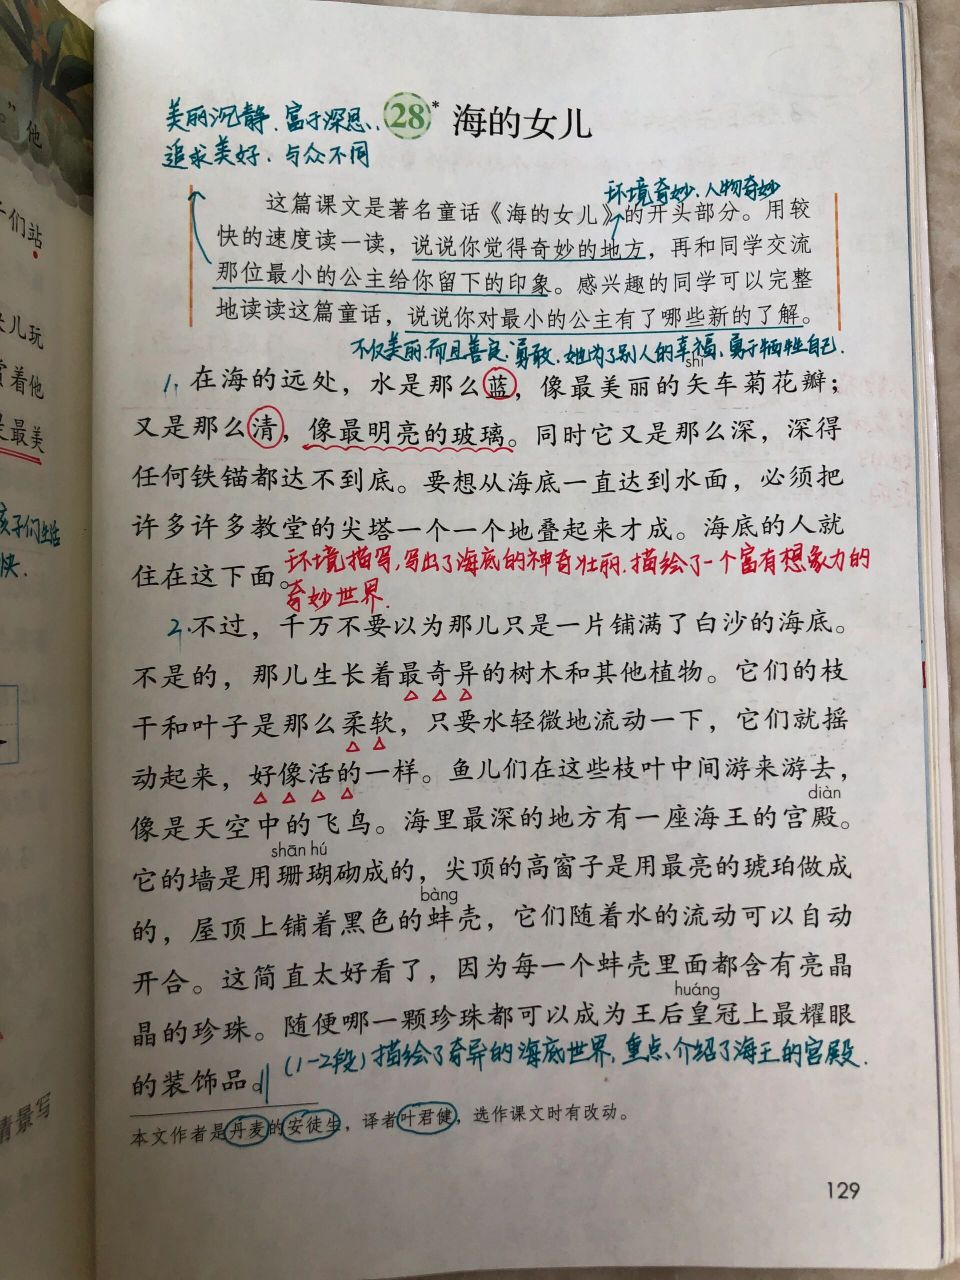 美丽沉静、富于深思、
追求美好、与众不同
28* 海的女儿
环境奇妙、人物奇妙
这篇课文是著名童话《海的女儿》的开头部分。用较
快的速度读一读，说说你觉得奇妙的地方，再和同学交流
那位最小的公主给你留下的印象。感兴趣的同学可以完整
地读读这篇童话，说说你对最小的公主有了哪些新的了解。
不仅美丽，而且善良、勇敢，她为了别人的幸福，勇于牺牲自己.
shǐ
1.在海的远处，水是那么蓝，像最美丽的矢车菊花瓣；
又是那么清，像最明亮的玻璃。同时它又是那么深，深得
任何铁锚都达不到底。要想从海底一直达到水面，必须把
许多许多教堂的尖塔一个一个地叠起来才成。海底的人就
住在这下面。
环境描写，写出了海底的神奇壮丽，描绘了一个富有想象力的
奇妙世界.
2.不过，千万不要以为那儿只是一片铺满了白沙的海底。
不是的，那儿生长着最奇异的树木和其他植物。它们的枝
干和叶子是那么柔软，只要水轻微地流动一下，它们就摇
动起来，好像活的一样。鱼儿们在这些枝叶中间游来游去，
diàn
像是天空中的飞鸟。海里最深的地方有一座海王的宫殿。
shān hú
它的墙是用珊瑚砌成的，尖顶的高窗子是用最亮的琥珀做成
bàng
的，屋顶上铺着黑色的蚌壳，它们随着水的流动可以自动
开合。这简直太好看了，因为每一个蚌壳里面都含有亮晶
huáng
晶的珍珠。随便哪一颗珍珠都可以成为王后皇冠上最耀眼
的装饰品。
(1-2段)描绘了奇异的海底世界，重点介绍了海王的宫殿.
本文作者是丹麦的安徒生，译者叶君健，选作课文时有改动。
129
”他
们站
儿玩
着他
是最美
孩子们生活
快.
情景写